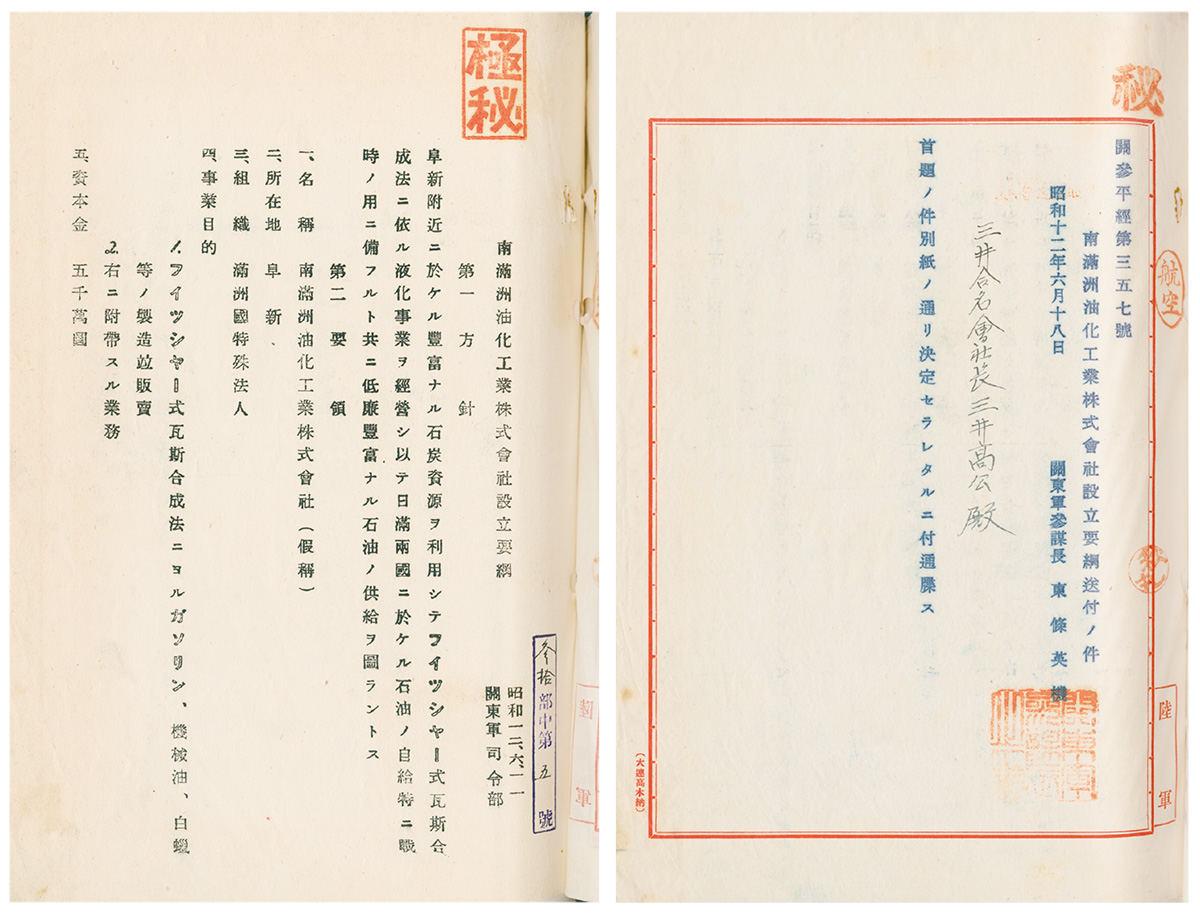 秘
關參平經第三五七號
南滿洲油化工業株式會社設立要綱送付ノ件
昭和十二年六月十八日
關東軍參謀長 東條英機
三井合名會社長三井高公殿
首題ノ件別紙ノ通リ決定セラレタルニ付通牒ス
航空
陸軍
(大連高木納)
極秘
參拾部中第五號
昭和一二、六、一一
關東軍司令部
南滿洲油化工業株式會社設立要綱
第一 方針
阜新附近ニ於ケル豐富ナル石炭資源ヲ利用シテフイツシヤー式瓦斯合
成法ニ依ル液化事業ヲ經營シ以テ日滿兩國ニ於ケル石油ノ自給特ニ戰
時ノ用ニ備フルト共ニ低廉豐富ナル石油ノ供給ヲ圖ラントス
第二 要領
一、名稱 南滿洲油化工業株式會社(假稱)
二、所在地 阜新、
三、組織 滿洲國特殊法人
四、事業目的
1. フイツシヤー式瓦斯合成法ニヨルガソリン、機械油、白蠟
等ノ製造竝販賣
2. 右ニ附帶スル業務
五、資本金 五千萬圓
陸軍